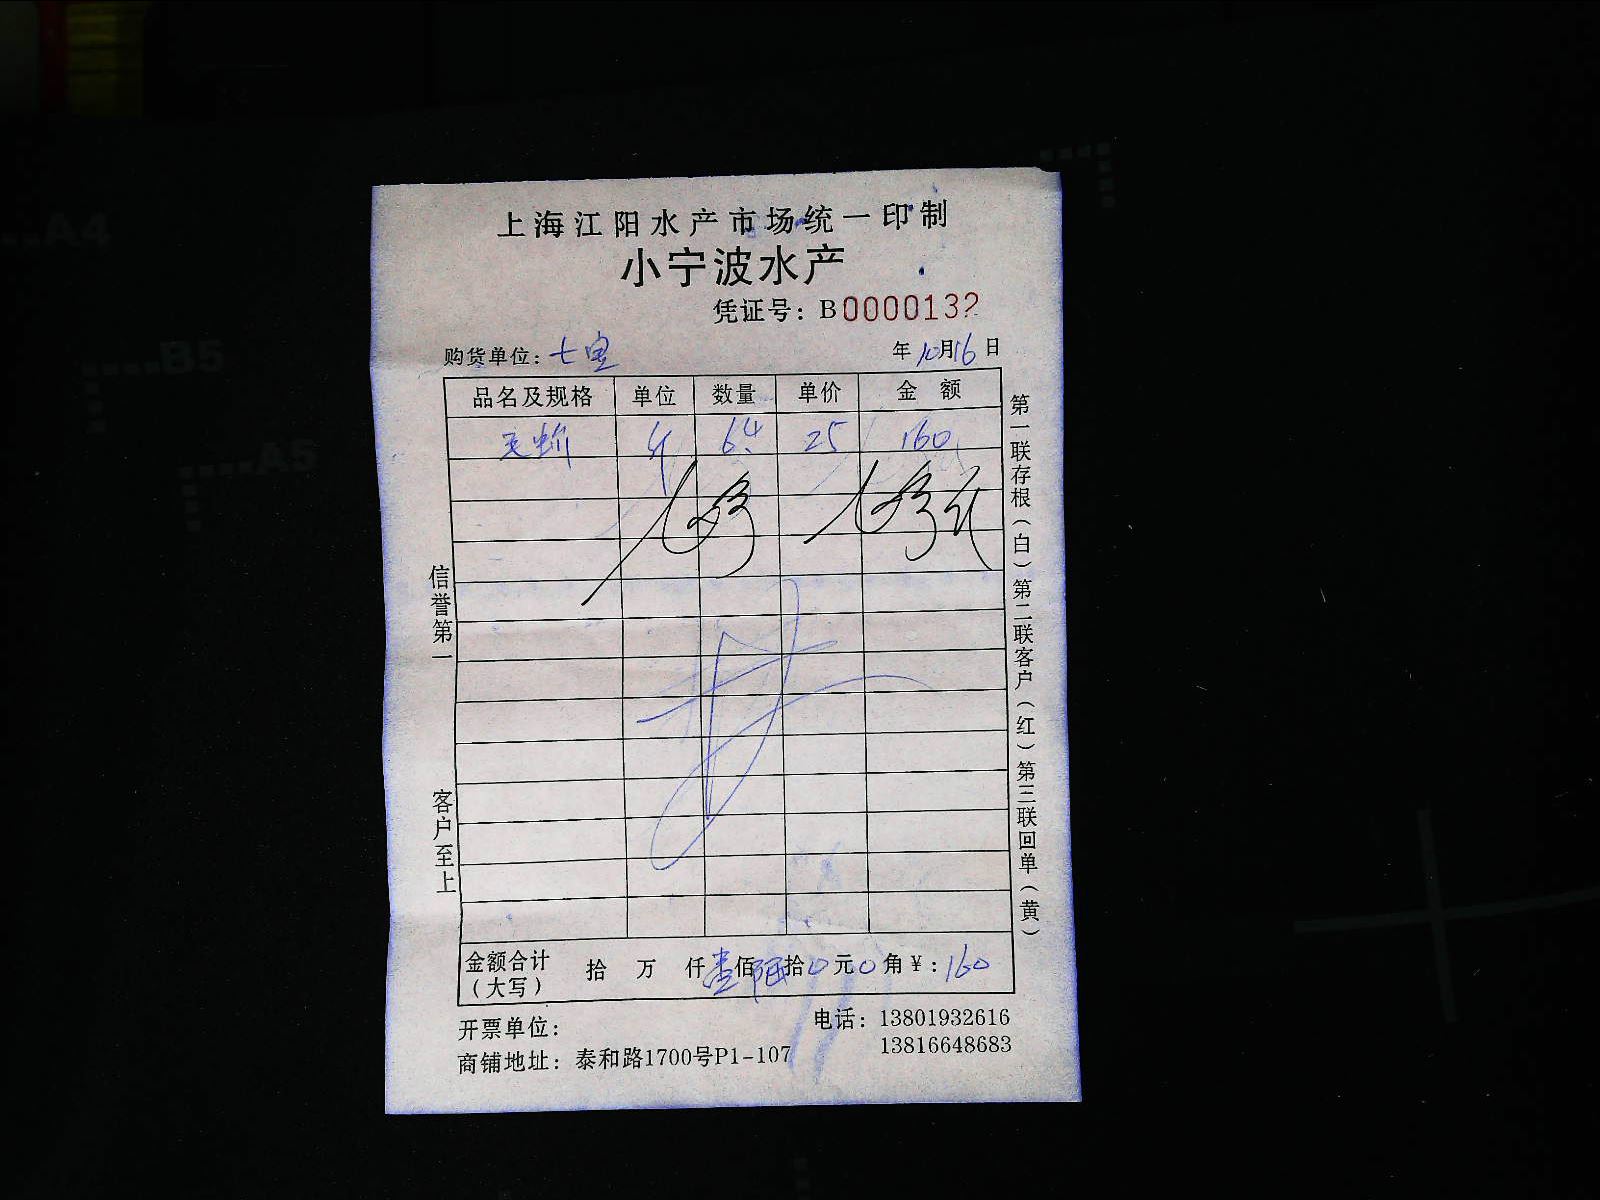 上海江阳水产市场统一印制
小宁波水产
凭证号：B0000132
购货单位：七宝 年10月16日
品名及规格 单位 数量 单价 金额
斤 6.4 25 160
金额合计（大写） 拾 万 仟壹佰陆拾0元0角¥：160
开票单位：
电话：13801932616
13816648683
商铺地址：泰和路1700号P1-107
信誉第一
客户至上
第一联存根（白）第二联客户（红）第三联回单（黄）
A4
B5
A5